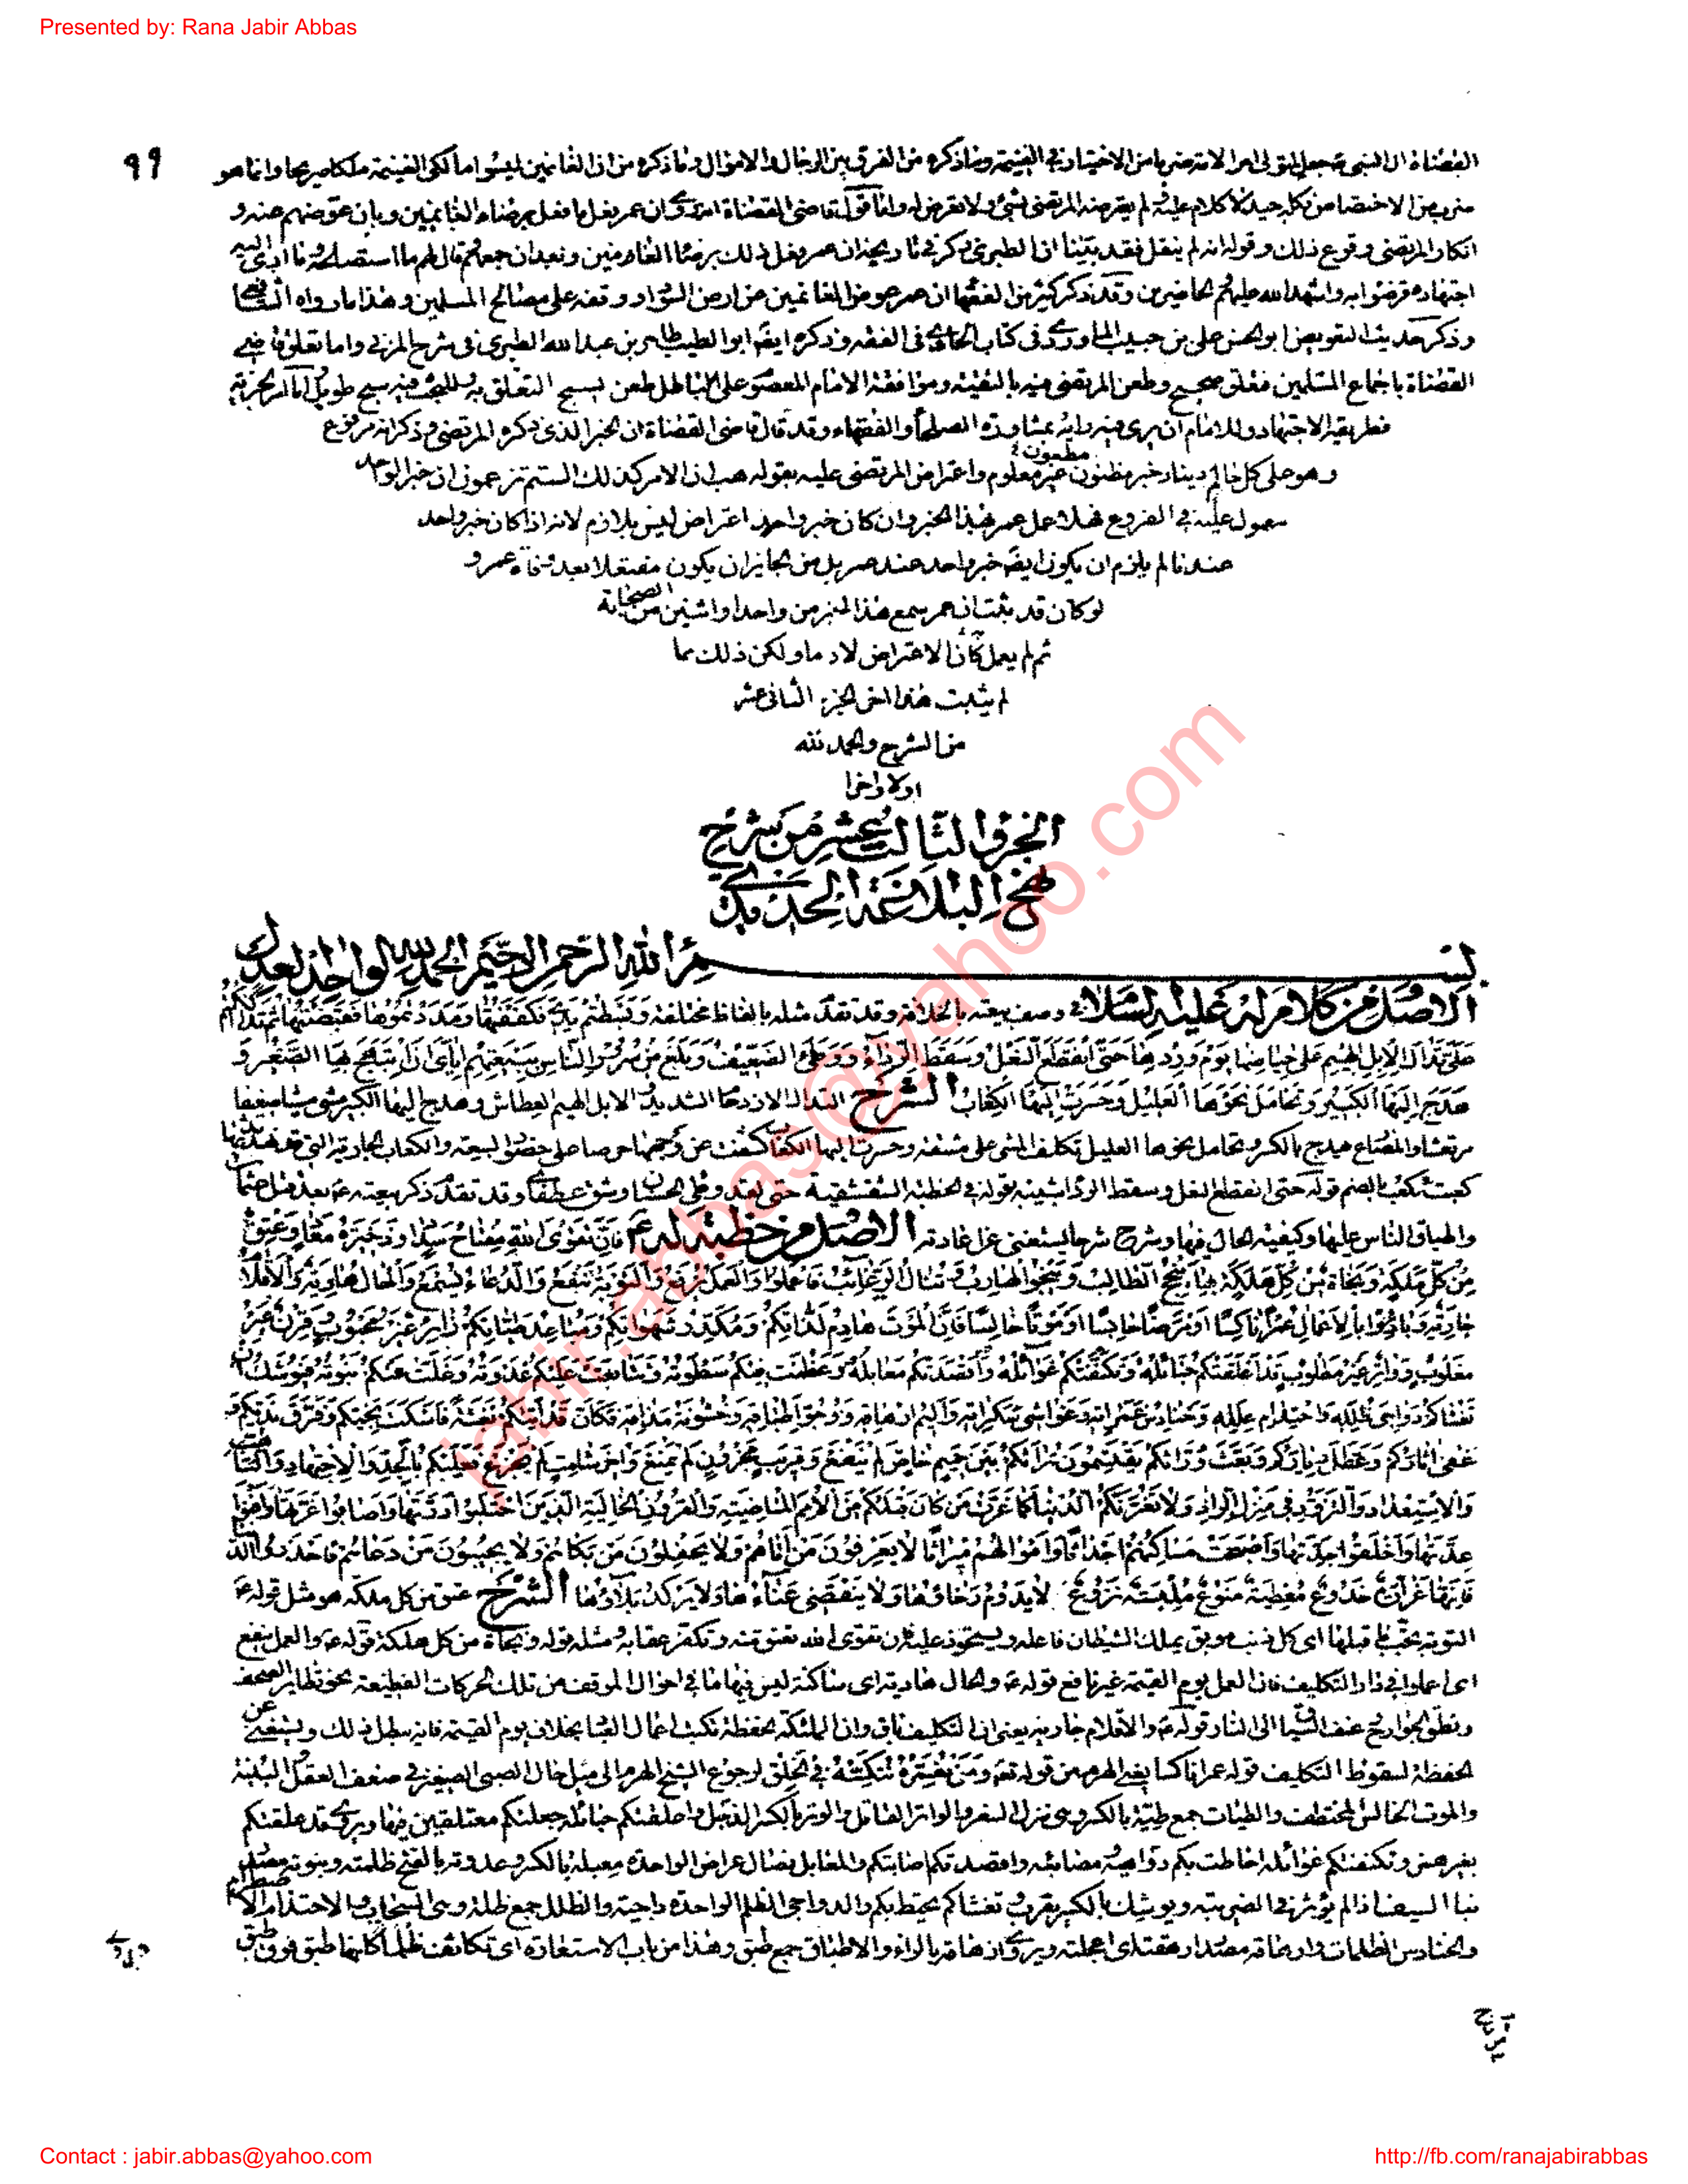 Presented by: Rana Jabir Abbas
٩٩
القضاة ان النبى ص جعل للمتولى امر الامة ضربا من الاختيار فى الغنيمة وما ذكره من الفرق بين الرجال والاموال وما ذكره من ان الغانمين ليسوا مالكى الغنيمة ملكا صريحا وانما هو
ضرب من الاختصاص فكله جيد لا كلام عليه لم يعترضه المرتضى بشئ ولا تعرض له واما قول قاضى القضاة ان عمر فعل ما فعل برضاء الغانمين وبان عوضهم عنه و
انكار المرتضى وقوع ذلك وقوله انه لم ينقل فقد بينا ان الطبرى ذكر فى تاريخه ان عمر فعل ذلك برضا الغانمين وبعد ان جمعهم قال لهم ما استصلحه وما ادى اليه
اجتهاده فرضوا به واشهد الله عليهم الحاضرين وقد ذكر كثير من الفقهاء ان عمر عوض الغانمين عن ارض السواد ووقفه على مصالح المسلمين وهذا ما رواه الشافعى
وذكر حديث التعويض ابو الحسن على بن حبيب الماوردى فى كتاب الحاوى فى الفقه وذكره ايضا ابو الطيب طاهر بن عبد الله الطبرى فى شرح المزنى واما تعلق قاضى
القضاة باجماع المسلمين فتعلق صحيح وطعن المرتضى فيه بالتقية وموافقة الامام المعصوم على الباطل طعن يسمج التعلق به وللبحث فيه سبح طويل اما امر الجزية
فطريقه الاجتهاد وللامام ان يرى فيه رايه بمشاورة الصلحاء والفقهاء وقد قال قاضى القضاة ان الخبر الذى ذكره المرتضى وذكر انه مرفوع
وهو على كل حالم دينار خبر مظنون غير معلوم واعتراض المرتضى عليه بقوله هب ان الامر كذلك الستم تزعمون ان خبر الواحد
معمول عليه فى الفروع فهلا عمل عمر بهذا الخبر وان كان خبر واحد اعتراض ليس بلازم لانه اذا كان خبر واحد
عندنا لم يلزم ان يكون ايضا خبر واحد عند عمر بل من الجايز ان يكون مفتعلا بعد وفاة عمر و
لو كان قد ثبت ان عمر سمع هذا الخبر من واحد او اثنين من الصحابة
ثم لم يعمل كان الاعتراض لازما ولكن ذلك مما
لم يثبت هذا اخر الجزء الثانى عشر
من الشرح والحمد لله
اولا واخرا
الجزء الثالث عشر من شرح
نهج البلاغة الحديدى
بسم الله الرحمن الرحيم الحمد لله الواحد العدل
الاصل من كلام له عليه السلام فى وصف بيعته بالخلافة وقد تقدم مثله بالفاظ مختلفة وبسطتم يدى فكففتها ومددتموها فقبضتها ثم تداككتم
على تداك الابل الهيم على حياضها يوم وردها حتى انقطع النعل وسقط الرداء ووطئ الضعيف وبلغ من سرور الناس ببيعتهم اياى ان ابتهج بها الصغير و
هدج اليها الكبير وتحامل نحوها العليل وحسرت اليها الكعاب الشرح التداك الازدحام الشديد الابل الهيم العطاش وهدج اليها الكبير مشى مشيا ضعيفا
مرتعشا والمضارع يهدج بالكسر وتحامل نحوها العليل تكلف المشى على مشقة وحسرت اليها الكعاب كشفت عن وجهها حرصا على حضور البيعة والكعاب الجارية التى قد نهد ثديها
كعبت تكعب بالضم قوله حتى انقطع النعل وسقط الرداء شبيه بقوله فى الخطبة الشقشقية حتى لقد وطئ الحسنان وشق عطفاى وقد تقدم ذكر بيعته ع بعد قتل عثمان
واطباق الناس عليها وكيفية الحال فيها وشرح شرحا يستغنى عن اعادته الاصل من خطبة له ع فان تقوى الله مفتاح سداد وذخيرة معاد وعتق
من كل ملكة ونجاة من كل هلكة بها ينجح الطالب وينجو الهارب وتنال الرغائب فاعملوا والعمل يرفع والتوبة تنفع والدعاء يسمع والحال هادئة والاقلام
جارية وبادروا بالاعمال عمرا ناكسا او مرضا حابسا او موتا خالسا فان الموت هادم لذاتكم ومكدر شهواتكم ومباعد طياتكم زائر غير محبوب وقرن غير
مغلوب وواتر غير مطلوب قد اعلقتكم حبائله وتكنفتكم غوائله واقصدتكم معابله وعظمت فيكم سطوته وتتابعت عليكم عدوته وقلت عنكم نبوته فيوشك ان
تغشاكم دواجى ظلله واحتدام علله وحنادس غمراته وغواشى سكراته واليم ارهاقه ودجو اطباقه وخشونة مذاقه فكان قد اتاكم بغتة فاسكت نجيكم وفرق نديكم و
عفى اثاركم وعطل دياركم وبعث وراثكم يقتسمون تراثكم بين حميم خاص لم ينفع وقريب محزون لم يمنع واخر شامت لم يجزع فعليكم بالجد والاجتهاد والتأهب
والاستعداد والتزود فى منزل الزاد ولا تغرنكم الدنيا كما غرت من كان قبلكم من الامم الماضية والقرون الخالية الذين احتلبوا درتها واصابوا غرتها وافنوا
عدتها واخلقوا جدتها واصبحت مساكنهم اجداثا واموالهم ميراثا لا يعرفون من اتاهم ولا يحفلون من بكاهم ولا يجيبون من دعاهم فاحذروا الدنيا
فانها غرارة خدوع معطية منوع ملبسة نزوع لا يدوم رخاؤها ولا ينقضى عناءها ولا يركد بلاؤها الشرح عتق من كل ملكة هو مثل قوله ع
التوبة تجب ما قبلها اى كل ذنب موبق يملك الشيطان فاعله ويستحوذ عليه فان تقوى الله تعتق منه وتكفر عقابه ومثله قوله ونجاة من كل هلكة قوله ع والعمل ينفع
اى اعملوا فى دار التكليف فان العمل يوم القيمة غير نافع قوله ع والحال هادية اى ساكنة ليس فيها ما فى احوال الموقف من تلك الحركات الفظيعة نحو تطاير الصحف
ونطق الجوارح وعنف السياق الى النار قوله ع والاقلام جارية يعنى ان التكليف باق وان الملئكة الحفظة تكتب اعمال العباد بخلاف يوم القيمة فانه يبطل ذلك ويستغنى عن
الحفظة لسقوط التكليف قوله عمرا ناكسا يعنى الهرم من قوله تعالى ومن نعمره ننكسه فى الخلق لرجوع الشيخ الهرم الى مثل حال الصبى الصغير فى ضعف العقل والبنية
والموت الخالس المختطف والطيات جمع طية بالكسر وهى منزل السفر والواتر القاتل والوتر بالكسر الذحل واعلقتكم حبائله جعلتكم معتلقين فيها ويروى قد علقتكم
بغير همز وتكنفتكم غوائله احاطت بكم دواهيه ومصائبه واقصدتكم اصابتكم والمعابل نصال عراض الواحدة معبلة بالكسر وعدوته بالفتح ظلمته ونبوته مصدر
نبا السيف اذا لم يؤثر فى الضريبة ويوشك بالكسر يقرب وتغشاكم تحيط بكم والدواجى الظلم الواحدة داجية والظلل جمع ظلة وهى السحاب والاحتدام الاضطرام
والحنادس الظلمات وارهاقه مصدر ارهقته اى اعجلته ويروى ازهاقه بالزاء والاطباق جمع طبق وهذا من باب الاستعارة اى تكاثف ظلمها كانها طبق فوق طبق
jabir.abbas@yahoo.com
Contact : jabir.abbas@yahoo.com
http://fb.com/ranajabirabbas